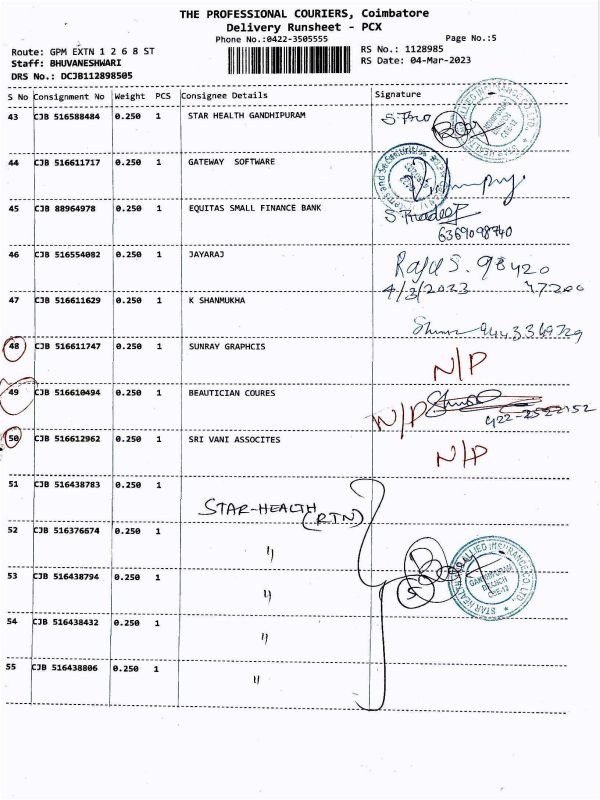 THE PROFESSIONAL COURIERS, Coimbatore
Delivery Runsheet - PCX
Phone No.:0422-3505555
Page No.:5
Route: GPM EXTN 1 2 6 8 ST
RS No.: 1128985
Staff: BHUVANESHWARI
RS Date: 04-Mar-2023
DRS No.: DCJB112898505
S No Consignment No Weight PCS Consignee Details Signature
43 CJB 516588484 0.250 1 STAR HEALTH GANDHIPURAM
44 CJB 516611717 0.250 1 GATEWAY SOFTWARE
45 CJB 88964978 0.250 1 EQUITAS SMALL FINANCE BANK S Pradeep
6369098740
46 CJB 516554082 0.250 1 JAYARAJ Raju S. 98420
4/3/2023 77200
47 CJB 516611629 0.250 1 K SHANMUKHA
48 CJB 516611747 0.250 1 SUNRAY GRAPHCIS N/P
49 CJB 516610494 0.250 1 BEAUTICIAN COURES N/P
50 CJB 516612962 0.250 1 SRI VANI ASSOCITES N/P
51 CJB 516438783 0.250 1 STAR-HEALTH (RTN)
52 CJB 516376674 0.250 1 "
53 CJB 516438794 0.250 1 "
54 CJB 516438432 0.250 1 "
55 CJB 516438806 0.250 1 "
STAR HEALTH ALLIED INSURANCE CO LTD.
GANDHIPURAM
BRANCH
CBE-12